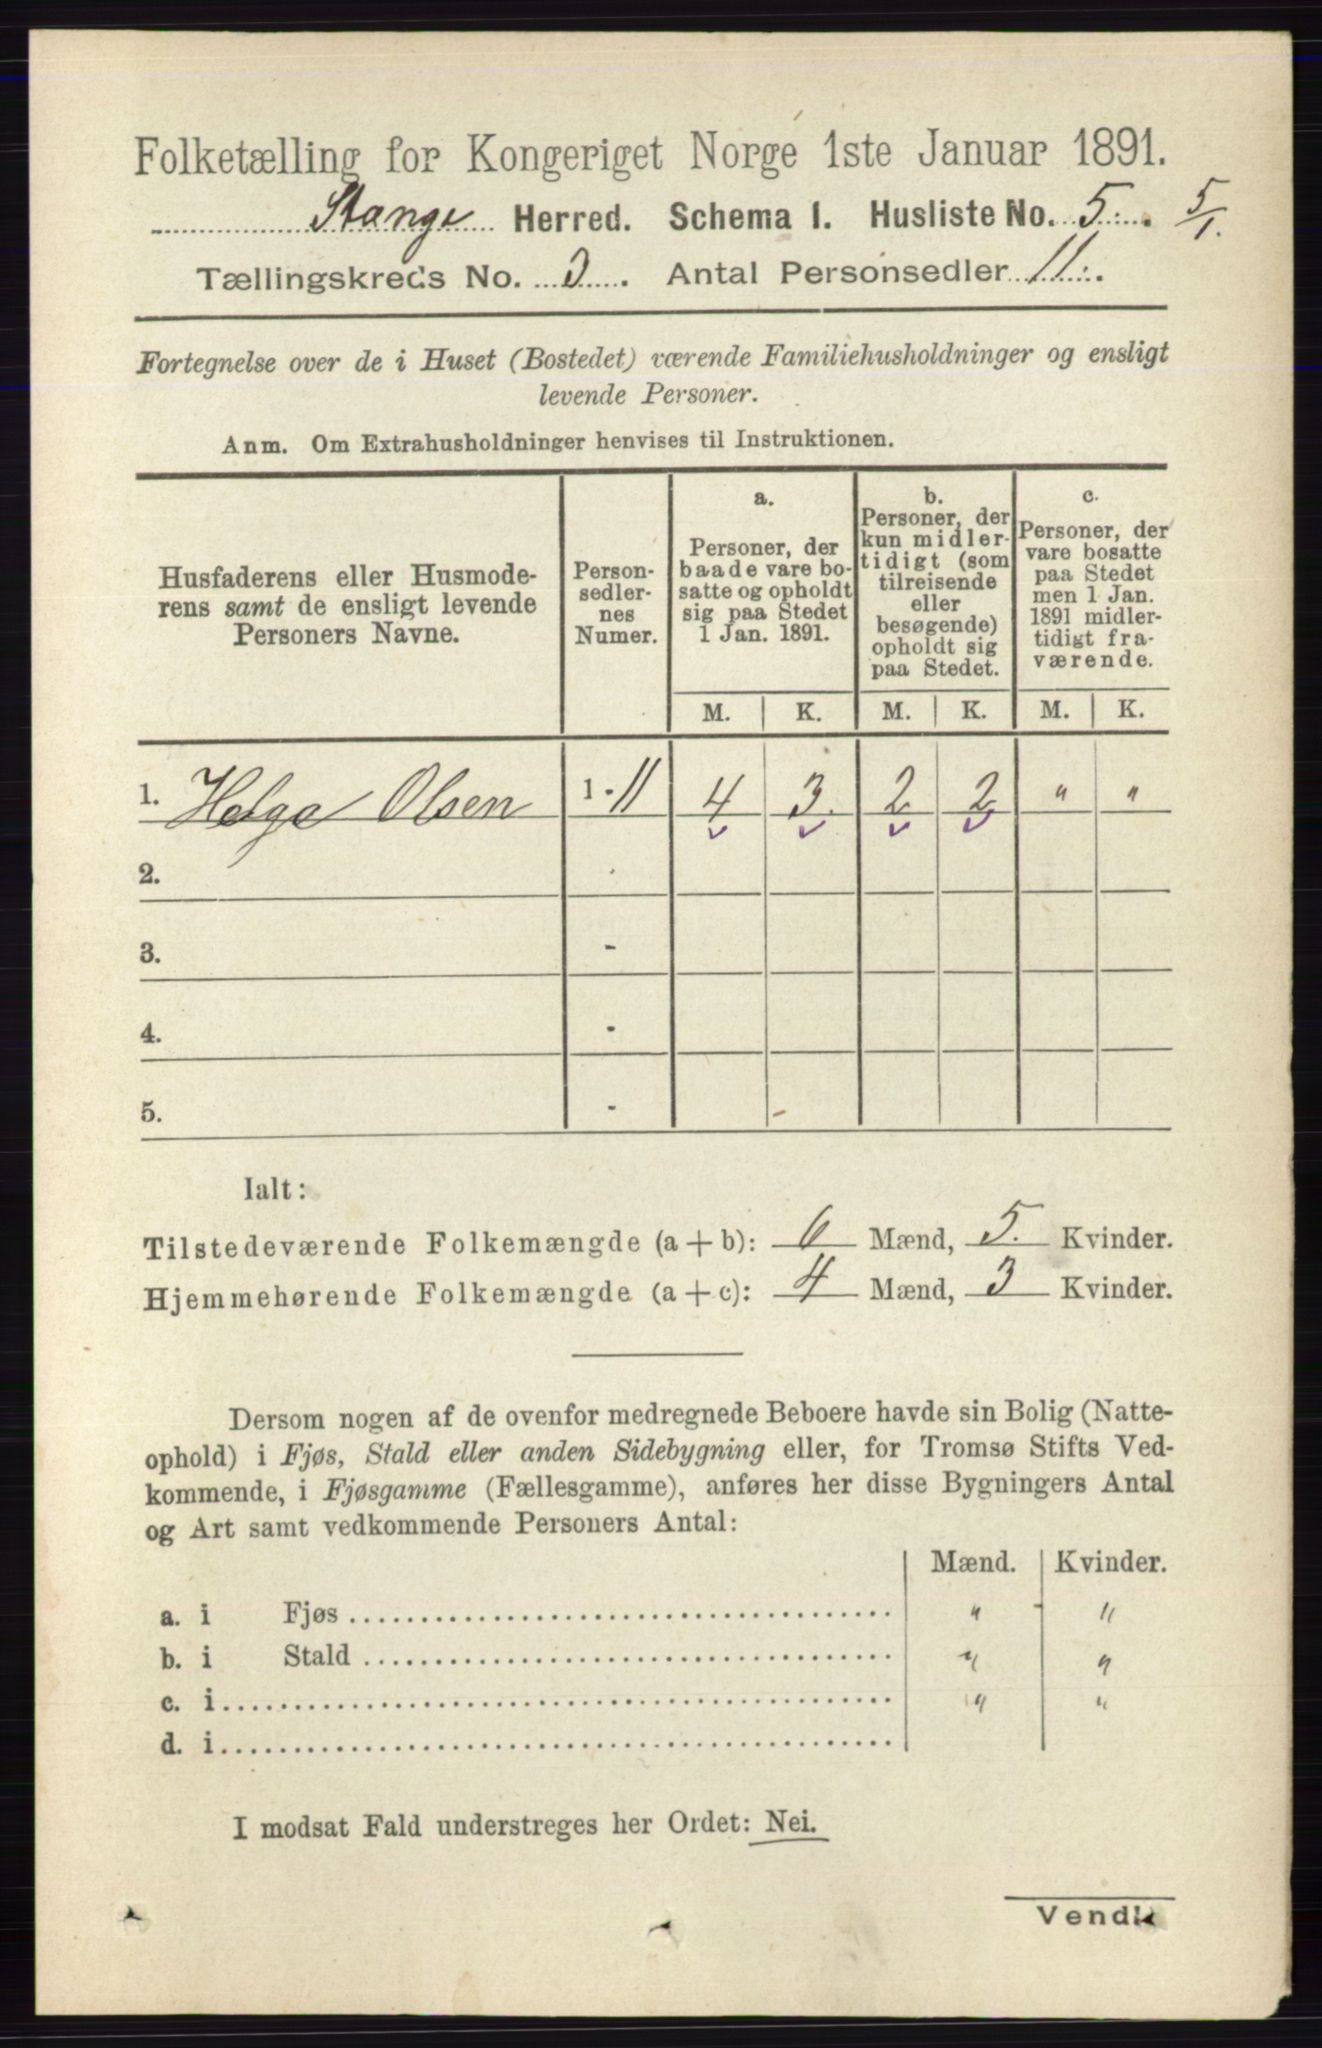 Folketælling for Kongeriget Norge 1ste Januar 1891.
Stange Herred. Schema I. Husliste No. 5. 5/1.
Tællingskreds No. 3. Antal Personsedler 11.
Fortegnelse over de i Huset (Bostedet) værende Familiehusholdninger og ensligt
levende Personer.
Anm. Om Extrahusholdninger henvises til Instruktionen.
Husfaderens eller Husmode-
rens samt de ensligt levende
Personers Navne.
Person-
sedler-
nes
Numer.
a.
Personer, der
baade vare bo-
satte og opholdt
sig paa Stedet
1 Jan. 1891.
b.
Personer, der
kun midler-
tidigt (som
tilreisende
eller
besøgende)
opholdt sig
paa Stedet.
c.
Personer, der
vare bosatte
paa Stedet
men 1 Jan.
1891 midler-
tidigt fra-
værende.
M. K. M. K. M. K.
1. Helge Olsen 1-11 4 3. 2 2 " "
2.
3. -
4. -
5. -
Ialt:
Tilstedeværende Folkemængde (a + b): 6 Mænd, 5. Kvinder.
Hjemmehørende Folkemængde (a + c): 4 Mænd, 3 Kvinder.
Dersom nogen af de ovenfor medregnede Beboere havde sin Bolig (Natte-
ophold) i Fjøs, Stald eller anden Sidebygning eller, for Tromsø Stifts Ved-
kommende, i Fjøsgamme (Fællesgamme), anføres her disse Bygningers Antal
og Art samt vedkommende Personers Antal:
Mænd. Kvinder.
a. i Fjøs " "
b. i Stald " "
c. i " "
d. i
I modsat Fald understreges her Ordet: Nei.
Vend!